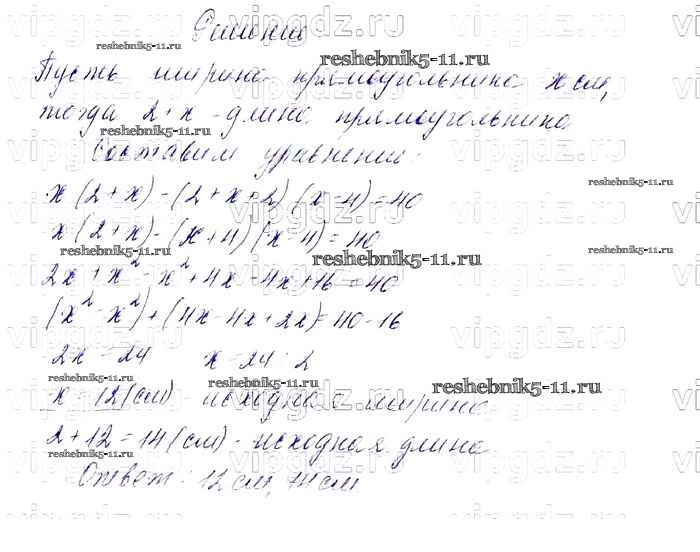 Решение
Пусть ширина прямоугольника x см,
тогда 2+x - длина прямоугольника.
Составим уравнение:
x(2+x)-(2+x+2)(x-4)=40
x(2+x)-(x+4)(x-4)=40
2x+x²-x²+4x-4x+16=40
(x²-x²)+(4x-4x+2x)=40-16
2x=24 x=24:2
x=12(см) - исходная ширина
2+12=14(см) - исходная длина
Ответ: 12 см, 14 см
vipgdz.ru
reshebnik5-11.ru